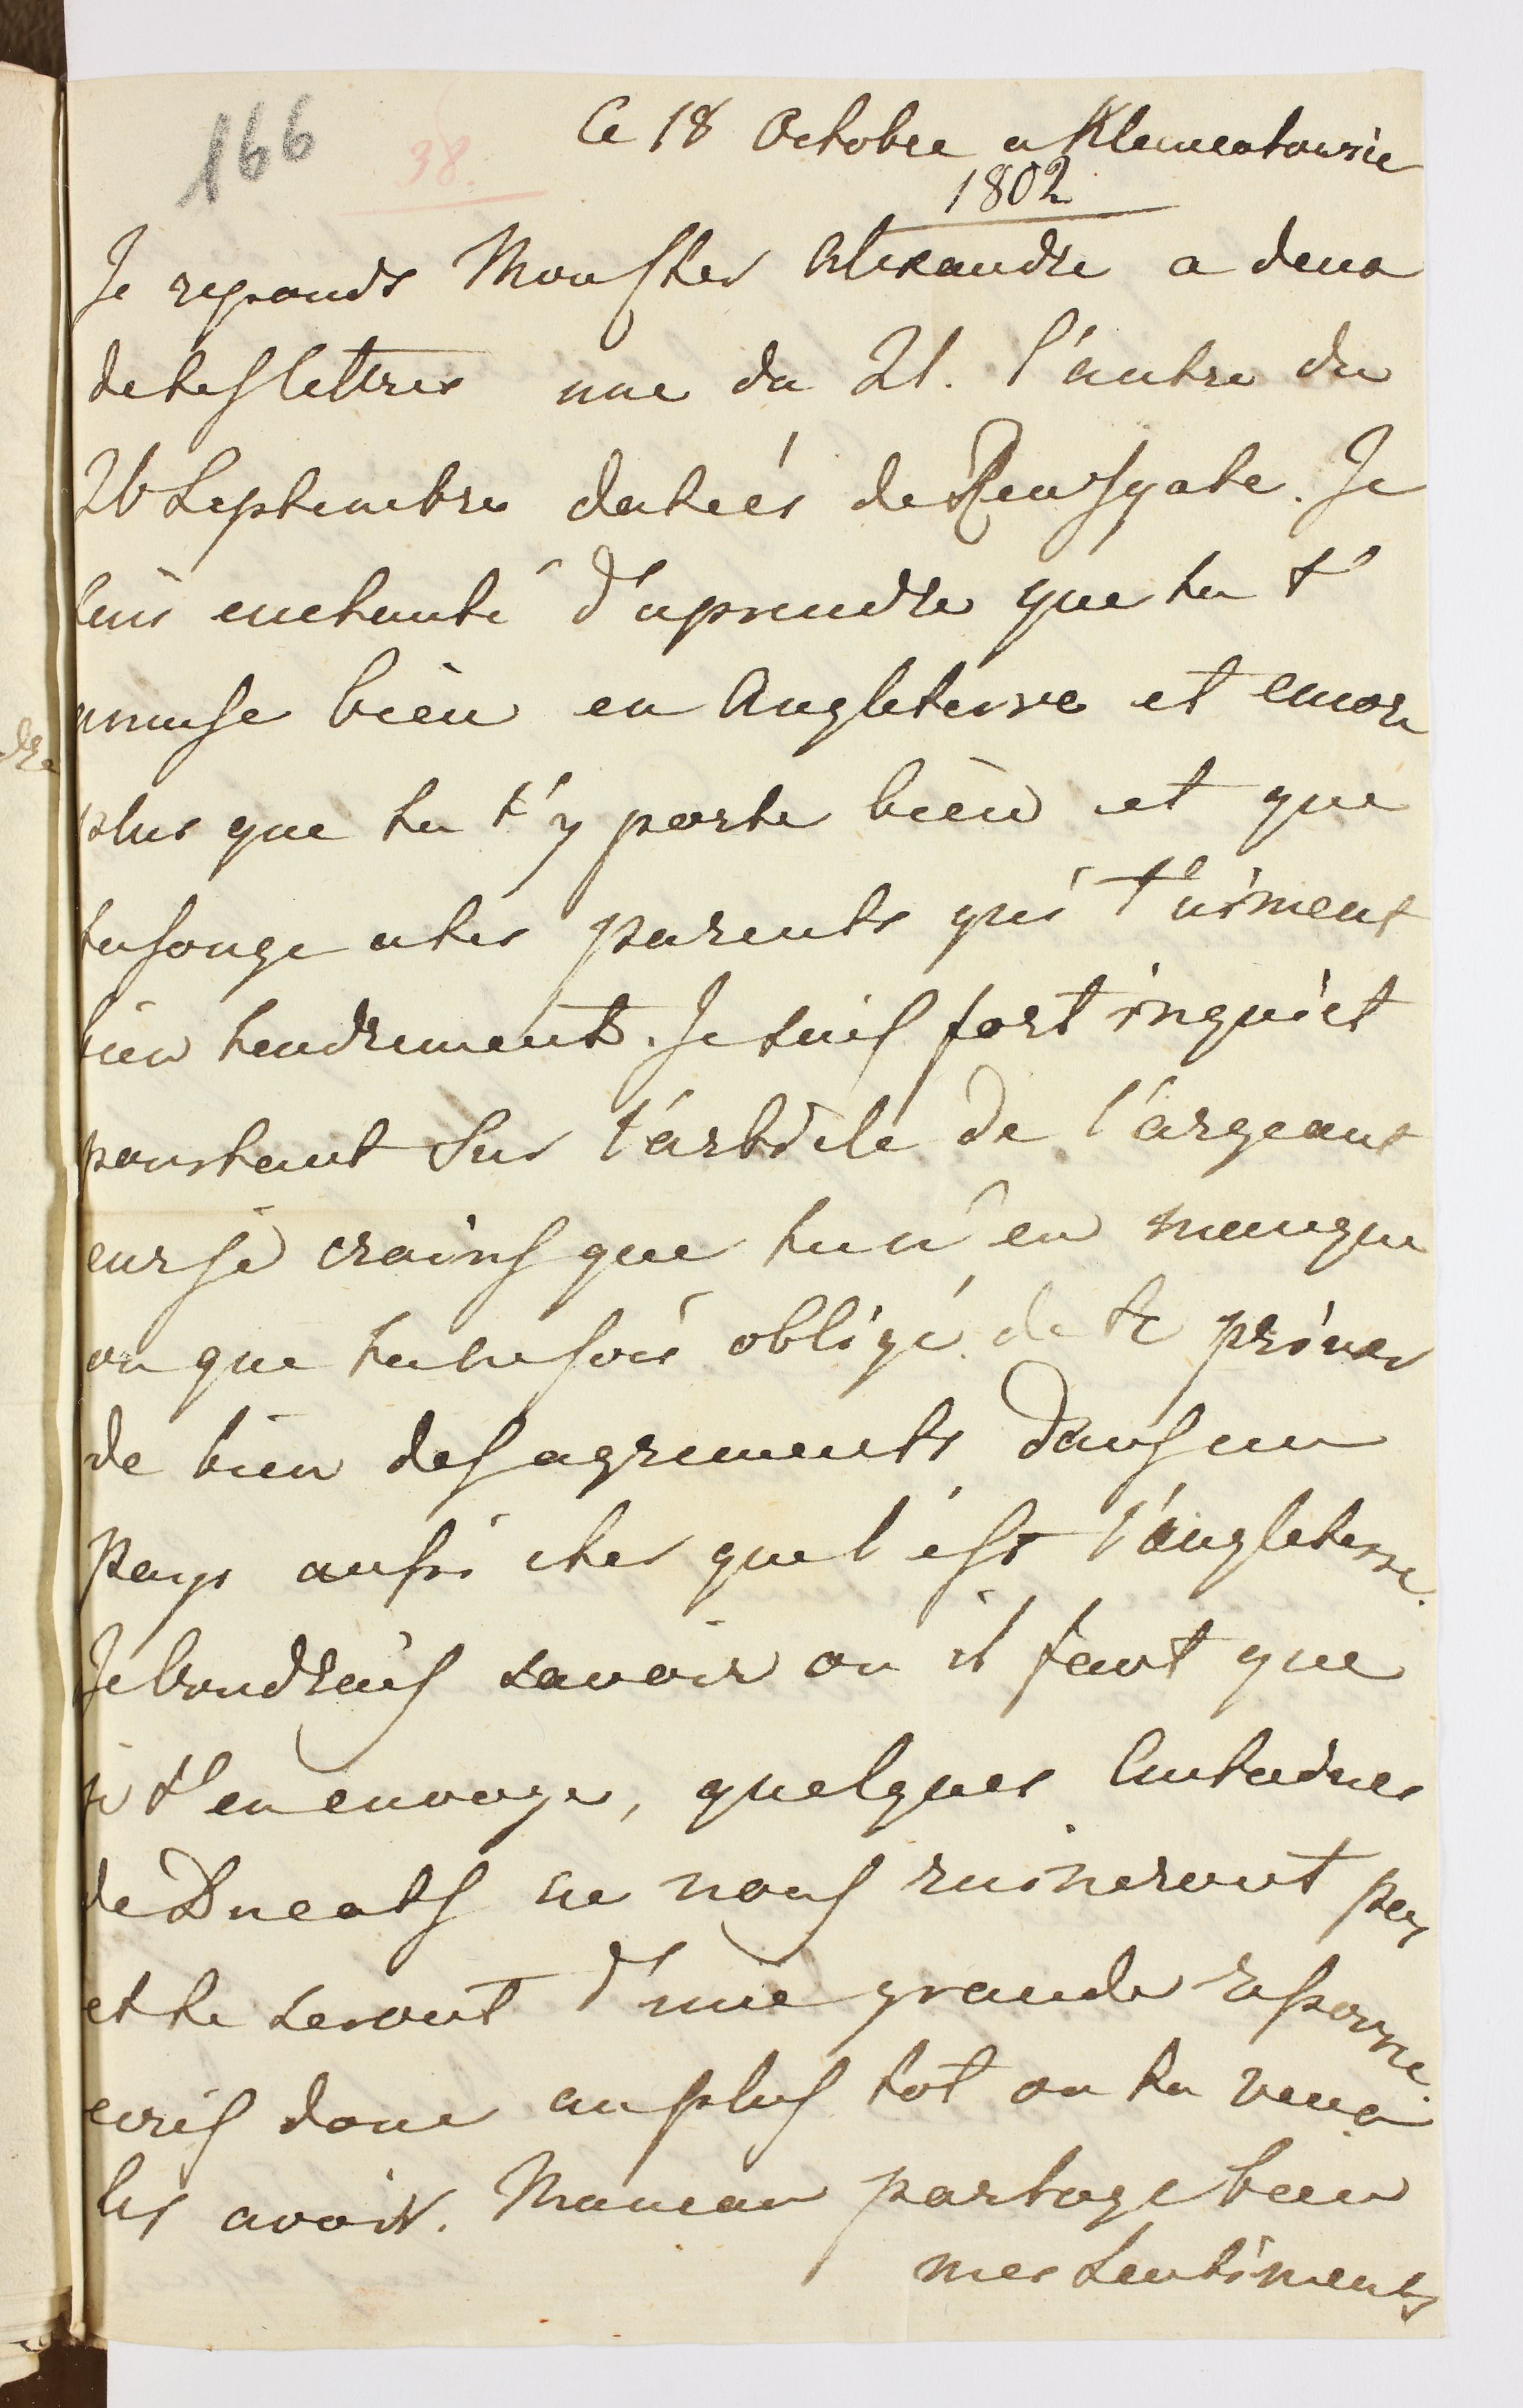 166
38.
Ce 18 Octobre a Klementowie
1802
Je reponds Mon cher Alexandre a deux
de tes lettres une du 21. l'autre du
26 Septembre datées de Remsgate. Je
suis enchanté d'aprendre que tu t'
amuse bien en Angleterre et encor
plus que tu t'y porte bien et que
tu songe a tes parents qui t'aiment
bien tendrement. Je suis fort inquiet
pourtant sur l'article de l'argeant
car je crains que tu n'en manque
ou que tu ne sois obligé de te priver
de bien des agrements dans un
Pays aussi cher que l'est l'angleterre.
Je voudrais savoir ou il faut que
je t'en envoye, quelques Centaines
de Ducats ne nous ruineront pas
et te seront d'une grande resource.
ecris donc au plus tot ou tu veux
les avoir. Maman partage bien
mes sentiments